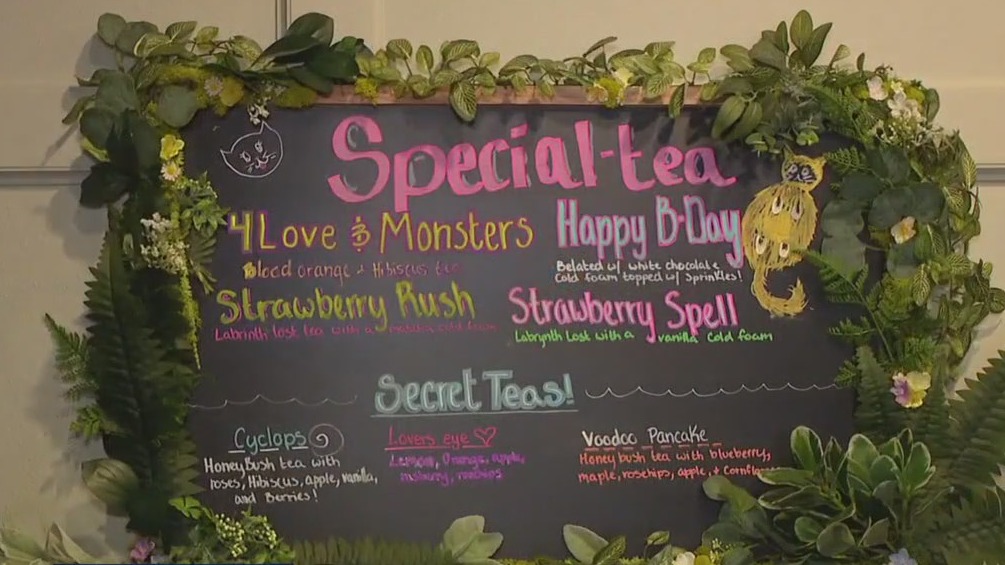 Special-tea
4 Love & Monsters
Blood orange + Hibiscus tea
Happy B-Day
Belated w/ white chocolate
cold foam topped w/ sprinkles!
Strawberry Rush
Labrinth lost tea with a matcha cold foam
Strawberry Spell
Labrynth Lost with a vanilla cold foam
Secret Teas!
Cyclops
Honey Bush tea with
roses, Hibiscus, apple, vanilla,
and Berries!
Lovers eye
Lemon, Orange, apple,
rasberry, rosehips
Voodoo Pancake
Honey bush tea with blueberry,
maple, rosehips, apple, +